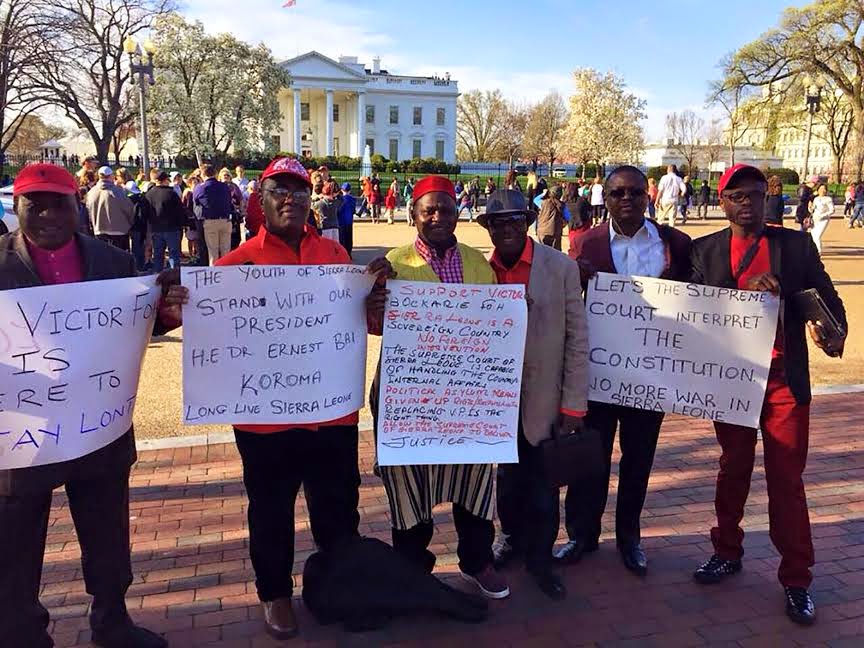 VICTOR FO
IS
ERE TO
TAY LONG
THE YOUTH OF SIERRA LEONE
STAND WITH OUR
PRESIDENT
H.E DR ERNEST BAI
KOROMA
LONG LIVE SIERRA LEONE
SUPPORT VICTOR
BOCKARIE FOH
SIERRA LEONE IS A
SOVEREIGN COUNTRY
NO FOREIGN
INTERVENTION
THE SUPREME COURT OF
SIERRA LEONE IS CAPABLE
OF HANDLING THE COUNTRY
INTERNAL AFFAIRS
POLITICAL ASYLUM MEANS
GIVEN UP RIGHTS/
REPLACING V.P. IS THE
RIGHT THING.
ALLOW THE SUPREME COURT
OF SIERRA LEONE TO DELIVER
JUSTICE
LET'S THE SUPREME
COURT INTERPRET
THE
CONSTITUTION.
NO MORE WAR IN
SIERRA LEONE